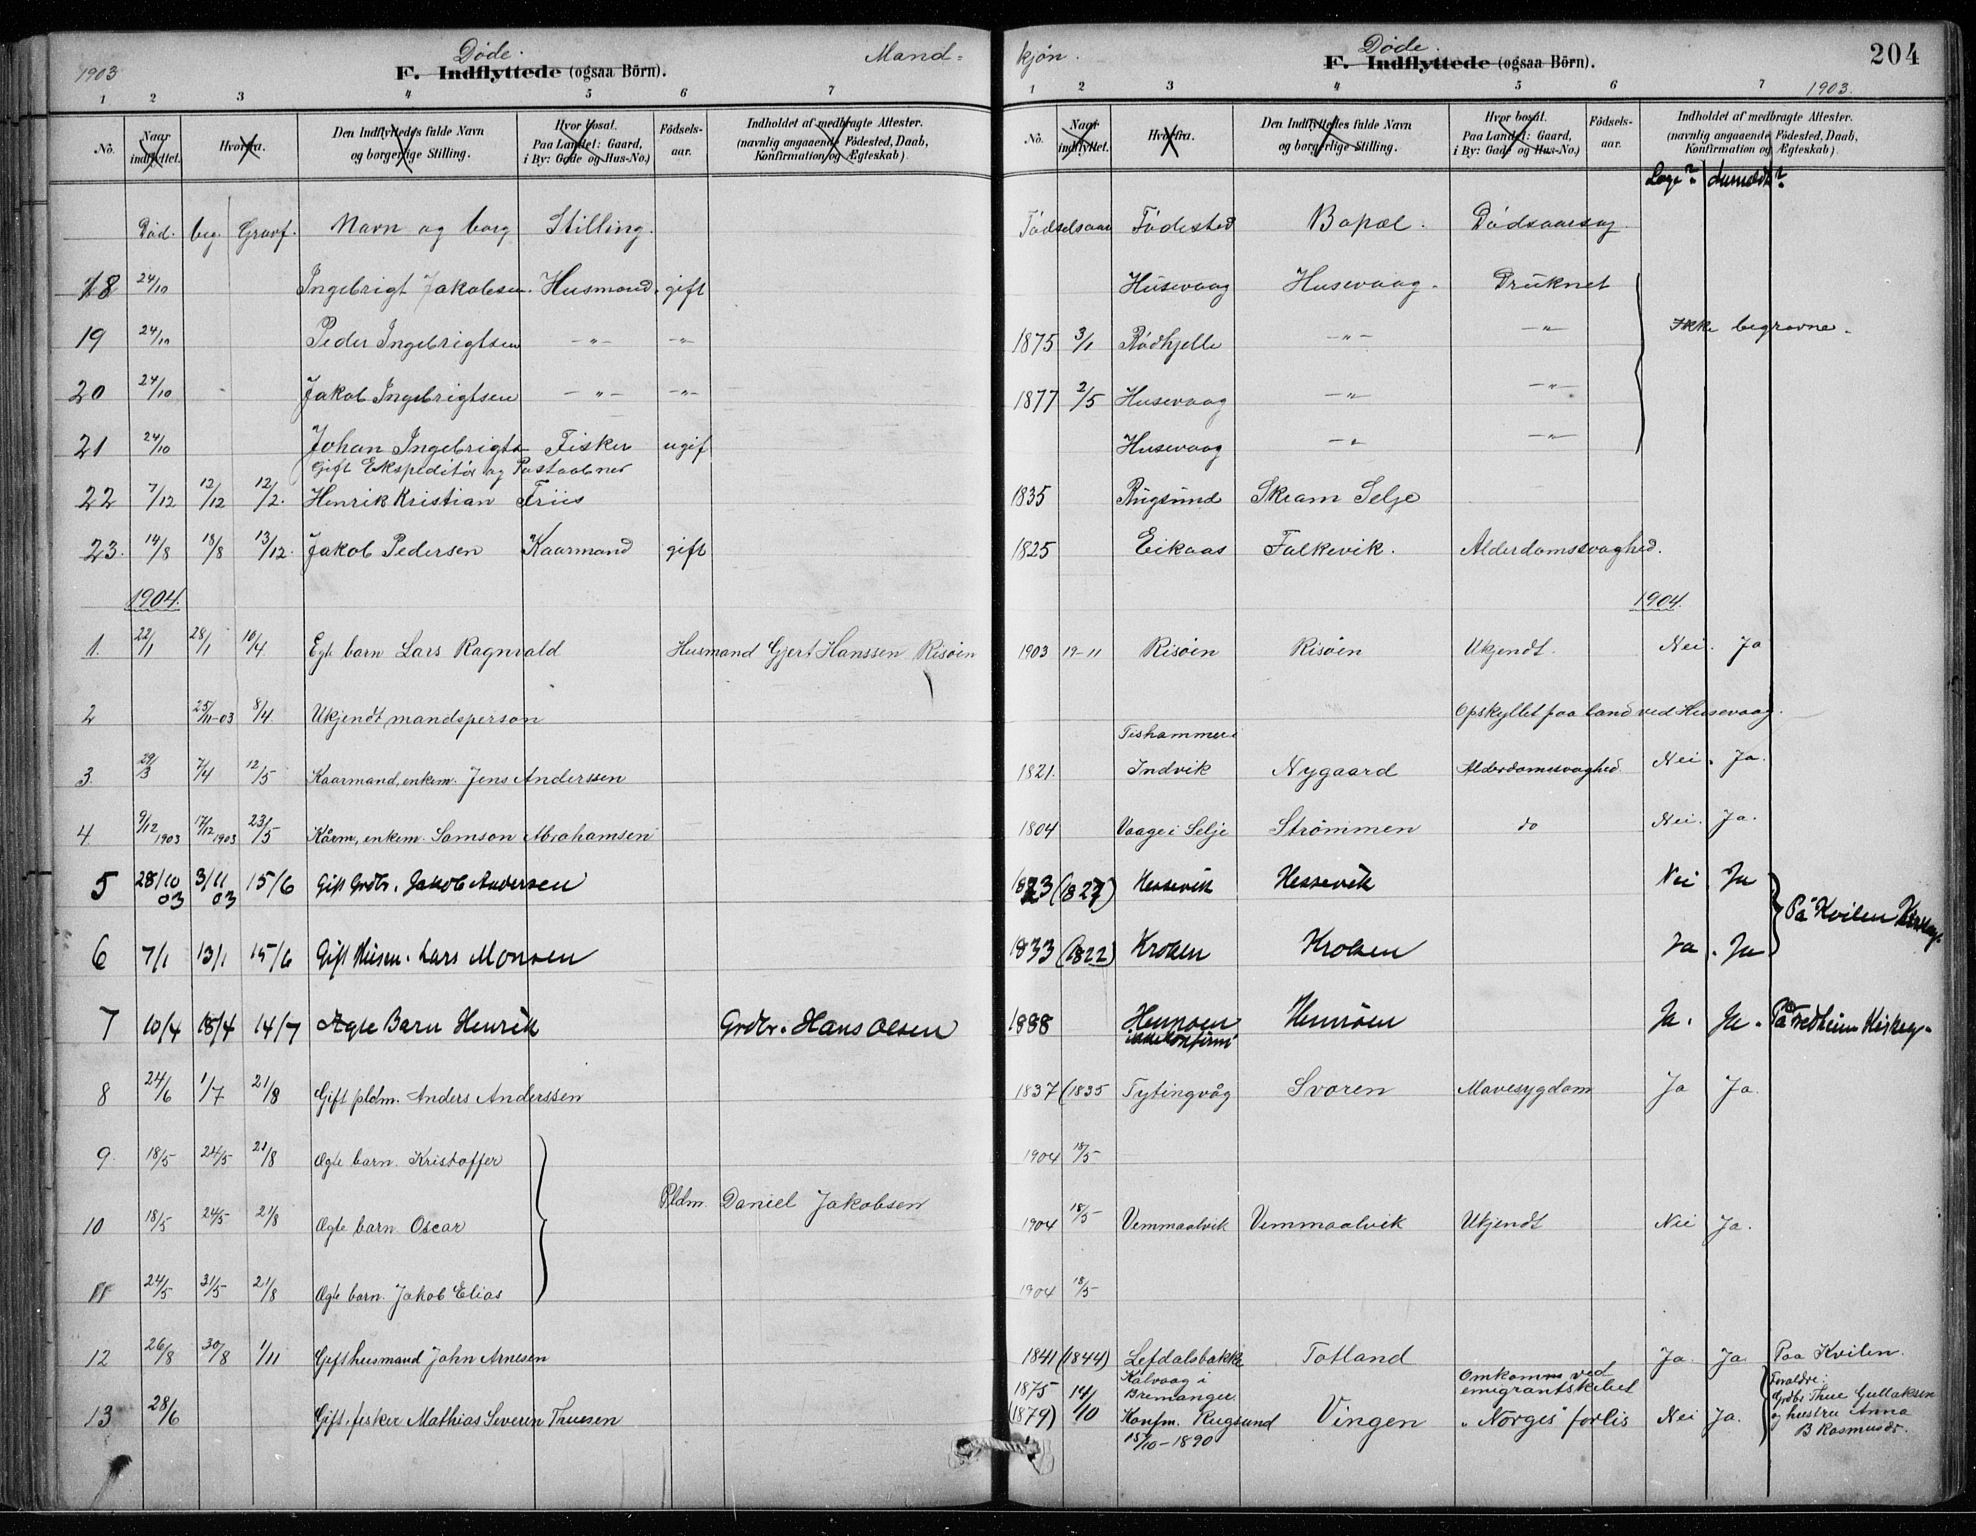 1903
Døde.
F. Indflyttede (ogsaa Börn).
Mand-
1 2 3 4 5 6 7
No. Naar indflyttet. Hvorfra. Den Indflyttedes fulde Navn og borgerlige Stilling. Hvor bosat. Paa Landet: Gaard, i By: Gade og Hus-No.) Födsels-aar. Indholdet af medbragte Attester. (navnlig angaaende Födested, Daab, Konfirmation og Ægteskab).
Død. beg. Gravf. Navn og borg Stilling.
18 24/10 Ingebrigt Jakobsen. Husmand. gift
19 24/10 Peder Ingebrigtsen -"- -"-
20 24/10 - Jakob Ingebrigtsen -"- -"-
21 24/10 Johan Ingebrigts Fisker ugif
Gift Ekspeditör og Postaabner
22 7/12 12/12 12/2. Henrik Kristian Friis
23. 14/8 18/8 13/12. Jakob Pedersen Kaarmand gift
1904.
1. 22/1 28/1 10/4 Egte barn Lars Ragnvald Husmand Gjert Hanssen Risöen
2 25/11-03 8/4 Ukjendt mandsperson
3. 29/3 7/4 12/5 Kaarmand, enkem. Jens Anderssen
4. 9/12 1903 17/12 1903 23/5 Kårm, enkem. Samson Abrahamsen
5 28/10 03 3/11 03 15/6 Gift Grdbr. Jakob Andersen
6 7/1 13/1 15/6 Gift Husm. Lars Monsen
7 10/4 18/4 14/7 Ægte Barn Henrik Grdbr. Hans Olsen
8 24/6 1/7 21/8 Gift pldm. Anders Anderssen
9. 18/5 24/5 21/8 Ægte barn. Kristoffer
Pldm. Daniel Jakobsen
10 18/5 24/5 21/8 Ægte barn Oscar
11 24/5 31/5 21/8 Ægte barn. Jakob Elias
12 26/8 30/8 1/11 Gift husmand John Arnesen
13 28/6 Gift. fisker Mathias Severin Thuesen
kjøn.
Døde.
F. Indflyttede (ogsaa Börn).
204
1903.
1 2 3 4 5 6 7
No. Naar indflyttet. Hvorfra. Den Indflyttedes fulde Navn og borgerlige Stilling. Hvor bosat. Paa Landet: Gaard, i By: Gade og Hus-No.) Födsels-aar. Indholdet af medbragte Attester. (navnlig angaaende Födested, Daab, Konfirmation og Ægteskab).
Læge? Anmeldt?
Födselsaar Födested Bopæl. Dödsaarsag.
Husevaag Husevaag. Druknet
Ikke begravne.
1875 3/1 Rödhjelle -"- -"-
1877 2/5 Husevaag -"- -"-
Husevaag -"- -"-
1835 Rugsund Skram Selje
1825 Eikaas Falkevik. Alderdomssvaghed.
1904.
1903 19-11 Risöen Risöen Ukjendt. Nei. Ja
Opskyllet paa land ved Husevaag.
1821. Indvik Nygaard Alderdomssvaghed. Nei. Ja.
1804 Vaage i Selje Strømmen do Nei. Ja.
1823 (1827) Hessevik Hessevik Nei Ja
På Kvilen
1833 (1822) Kroken Kroken Ja. Ja
1888 Hennøen Hennøen Ja. Ja.
1837 (1835 Tytingvåg Svoren Mavesygdom Ja Ja
1904 18/5
1904 18/5 Vemmaalvik Vemmaalvik Ukjendt Nei Ja.
1904 18/5
1841 (1844) Lefdalsbakke Totland Ja. Ja. Paa Kvilen.
1875 (1879) 14/10 Kalvaag i Bremanger Konfm. Rugsund 15/10-1890 Vingen Omkomm ved emigrantskibet "Norges" forlis Nei Ja. Foraldre: Grdbr Thue Gullaksen og hustru Anna B Rasmusdr.